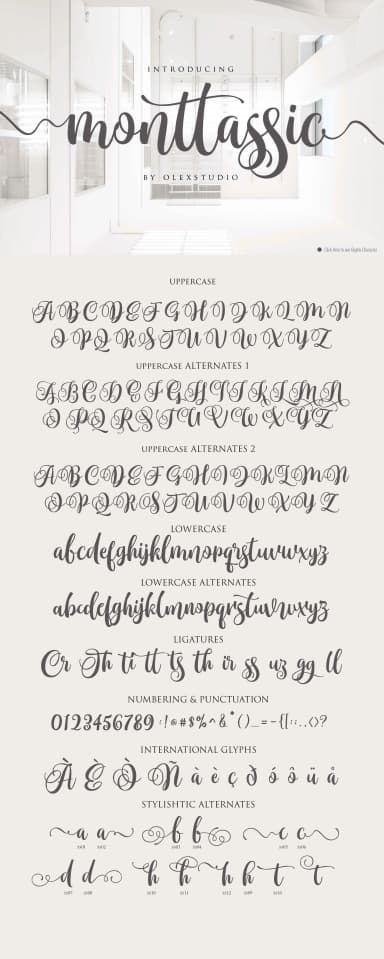 INTRODUCING
monttassic
BY OLEXSTUDIO
UPPERCASE
A B C D E F G H I J K L M N
O P Q R S T U V W X Y Z
UPPERCASE ALTERNATES 1
A B C D E F G H I J K L M N
O P Q R S T U V W X Y Z
UPPERCASE ALTERNATES 2
A B C D E F G H I J K L M N
O P Q R S T U V W X Y Z
LOWERCASE
abcdefghijklmnopqrstuvwxyz
LOWERCASE ALTERNATES
abcdefghijklmnopqrstuvwxyz
LIGATURES
Or Th ti tt ts th ir ss us gg ll
NUMBERING & PUNCTUATION
0123456789 
INTERNATIONAL GLYPHS
À È Ò Ñ à è ç ð ó ô ü å
STYLISHTIC ALTERNATES
a a b b c c
d d h h h h t t